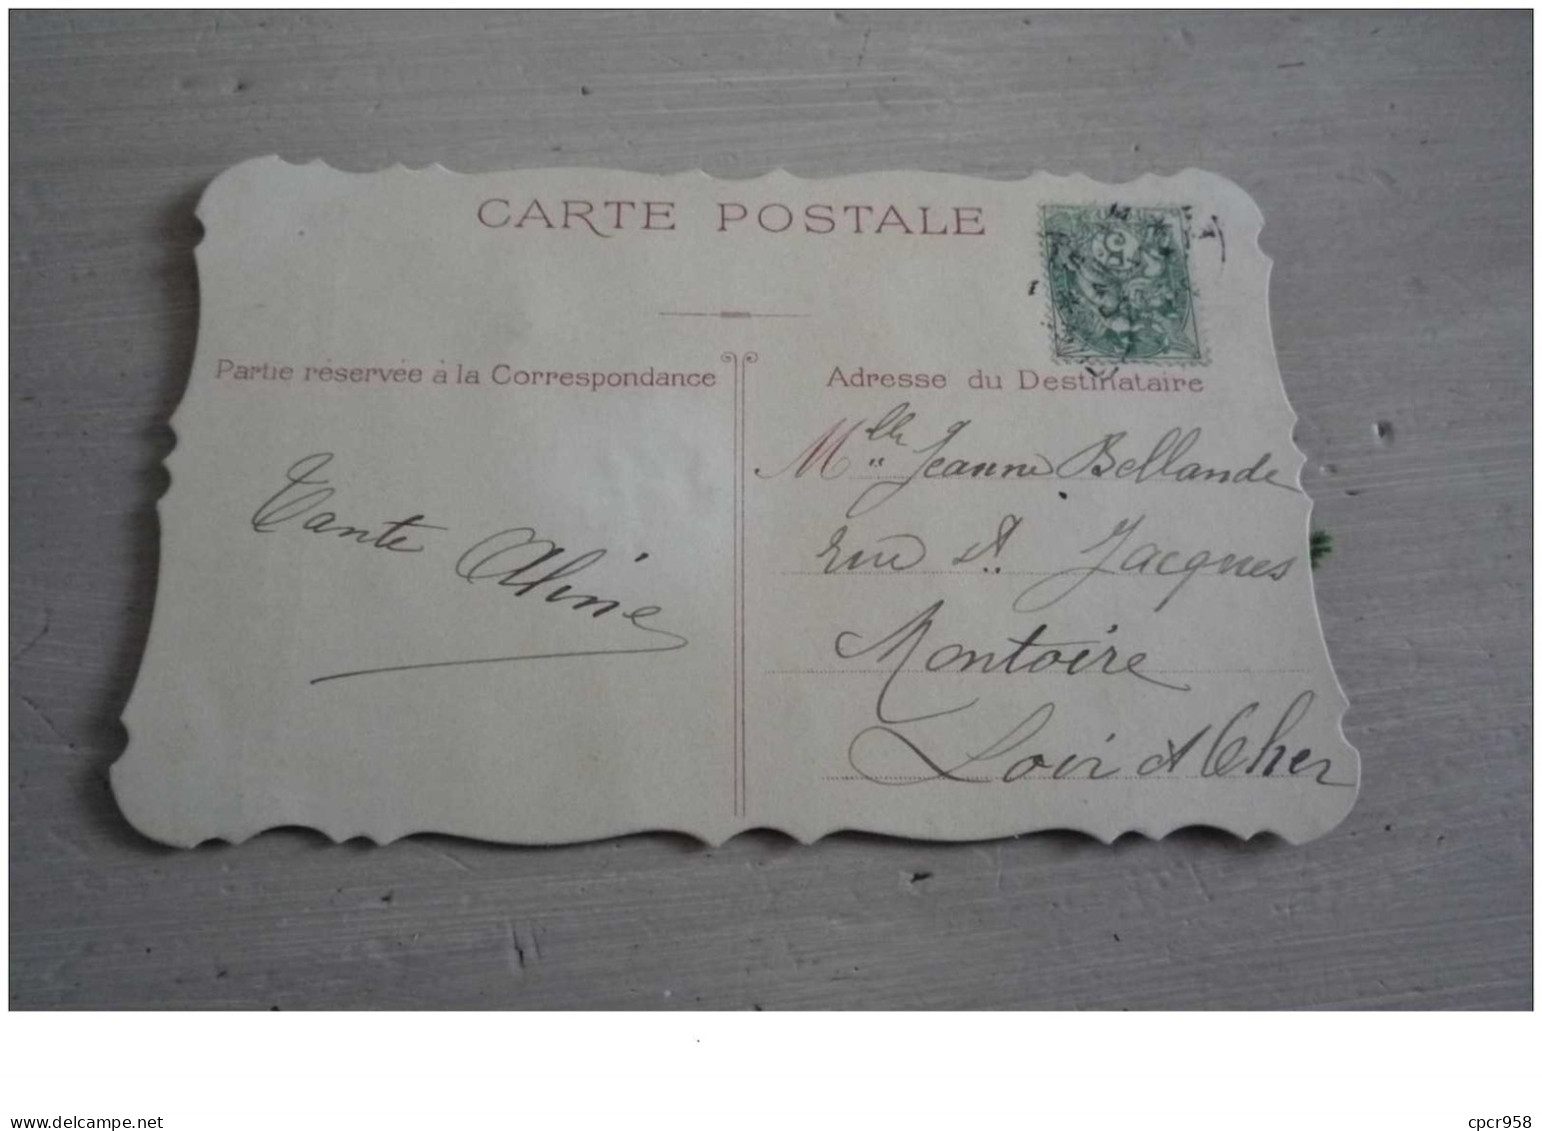 CARTE POSTALE
5
Partie réservée à la Correspondance
Adresse du Destinataire
Tante Aline
Mlle Jeanne Bellande
rue St Jacques
Montoire
Loir et Cher
www.delcampe.net
cpcr958